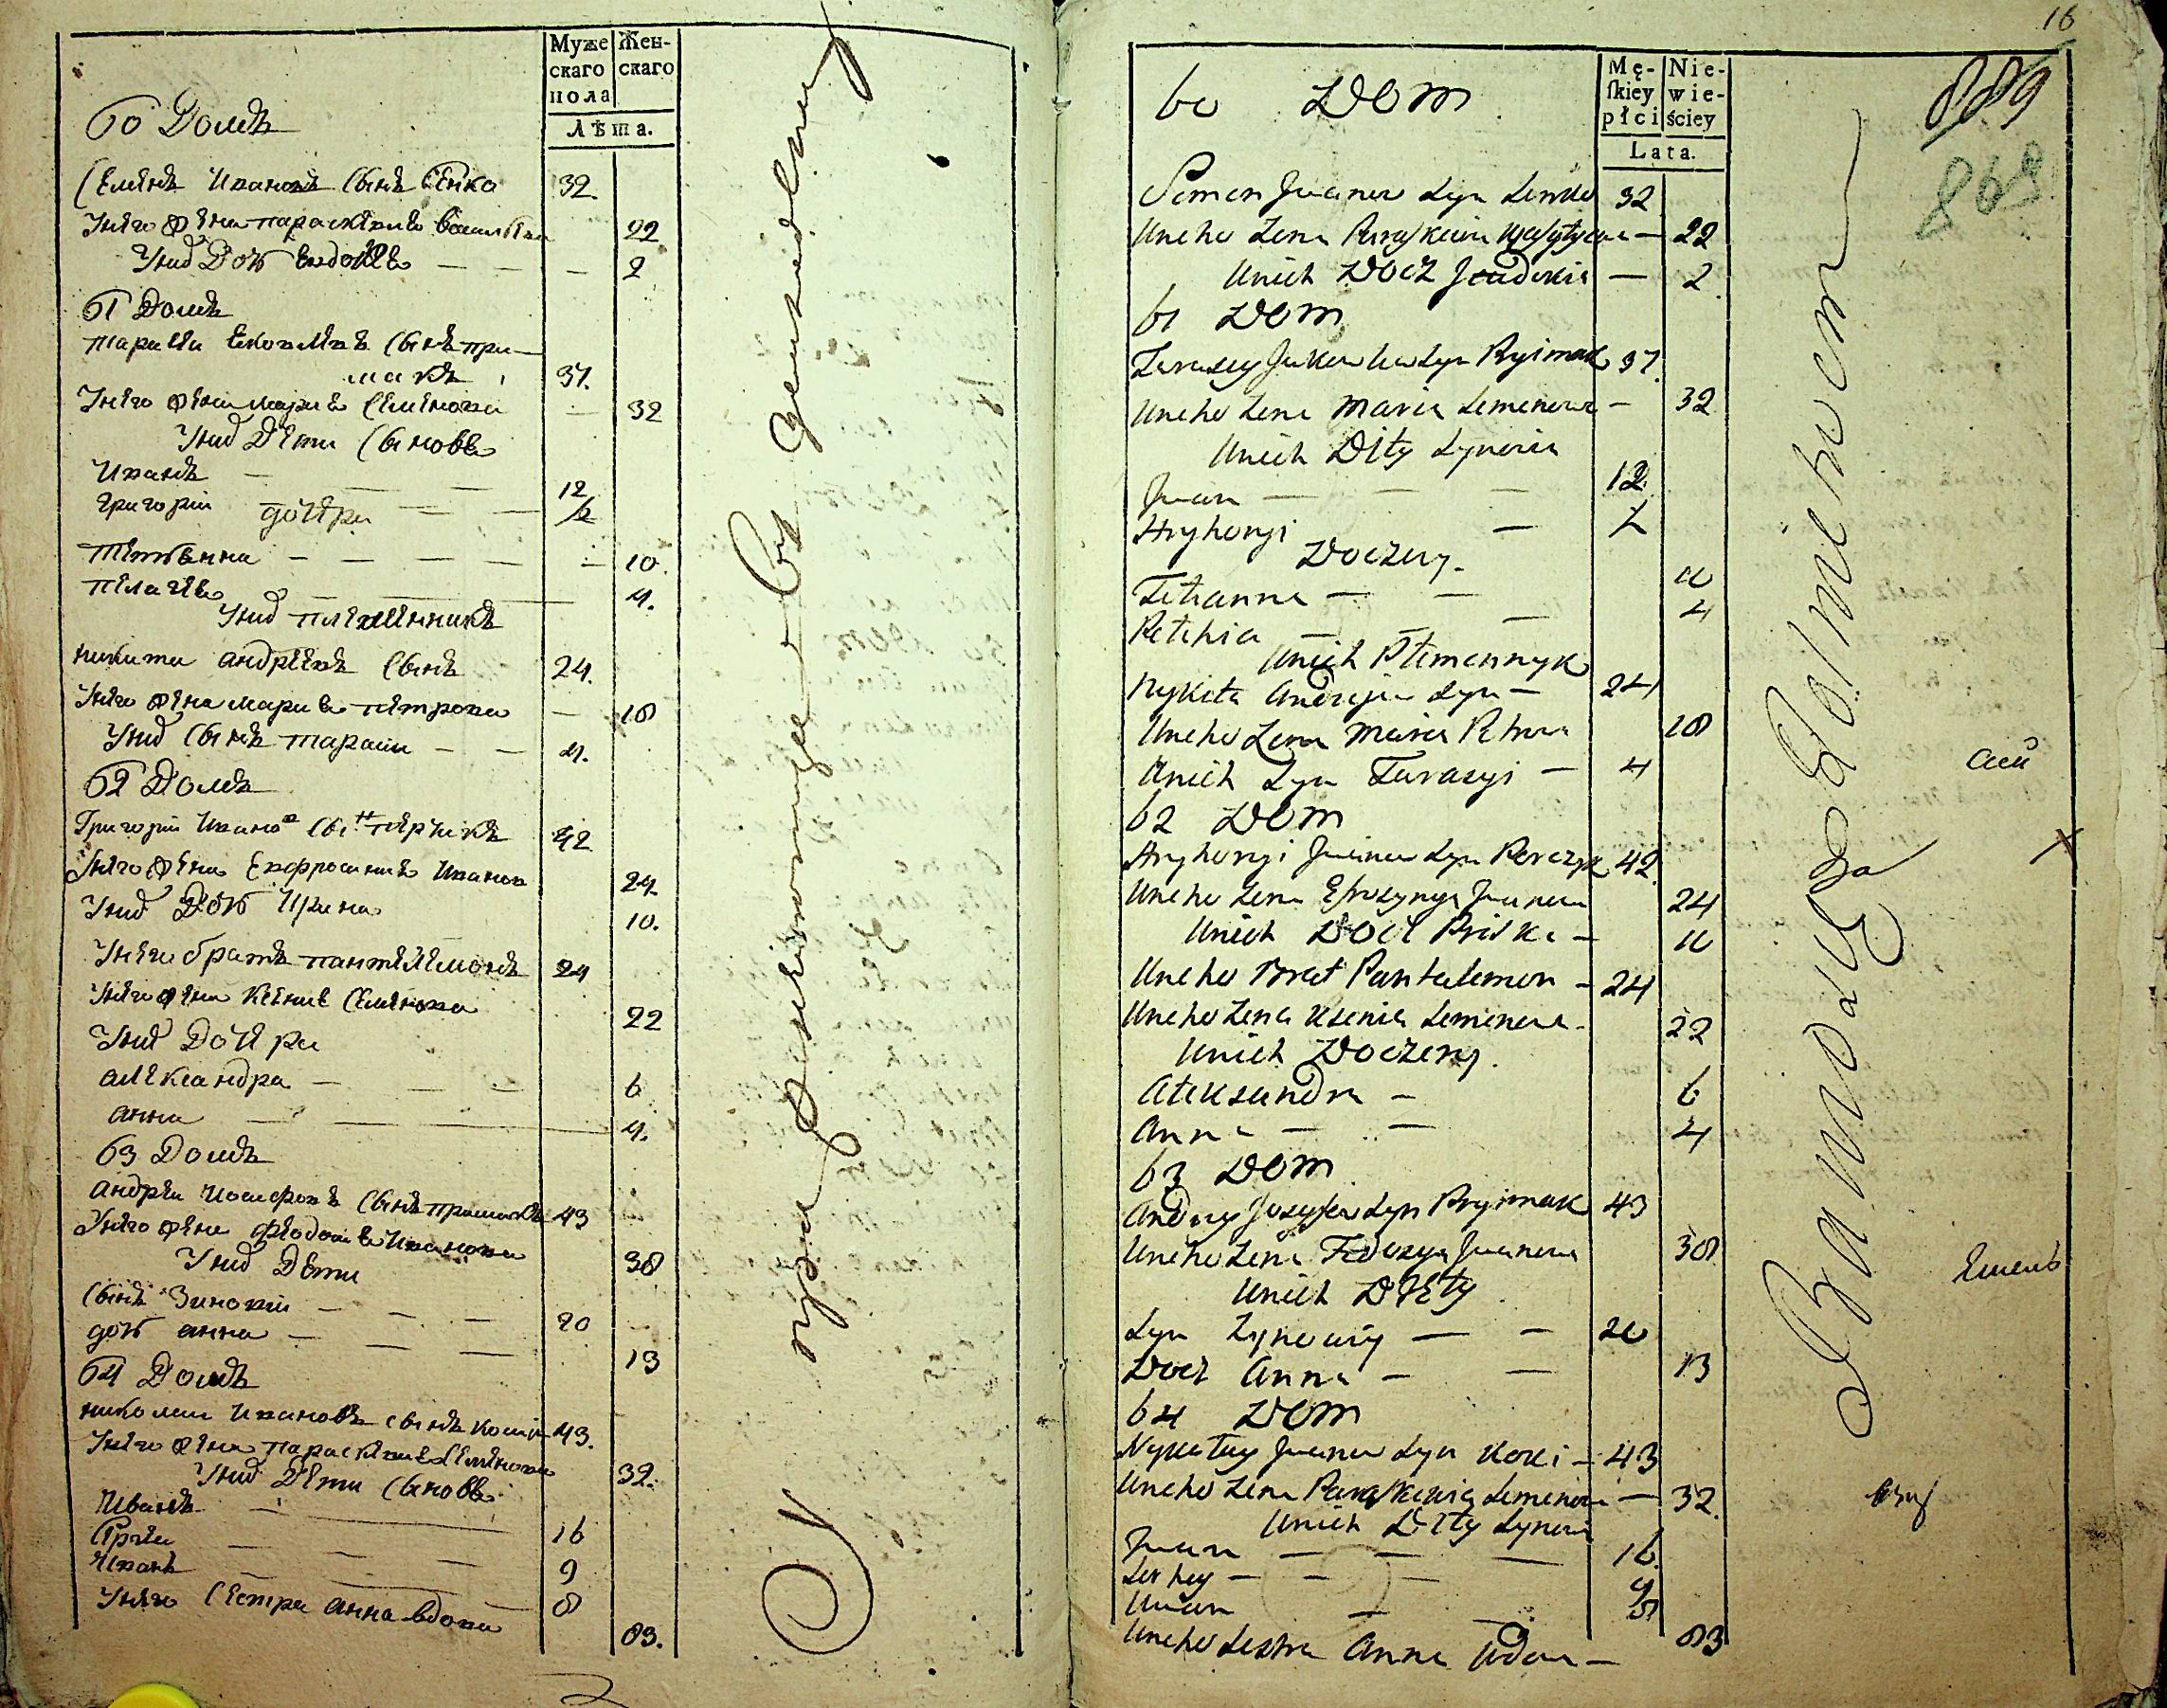 Муже
скаго
пола
Жен-
скаго
Лѣта.
60 Домъ
Семенъ Ивановъ сынъ Сенко 32.
Унего жена Параскевиѧ Василева 22
Уних Доч Евдокѣѧ — — — 2
61 Домъ
Тарасеи Ековлевъ сынъ при-
макъ 37.
Унего жена Мариѧ Семенова — 32
Уних Дети Сыновѣѧ
Иванъ — — — 12
Григорий — —
дочери
Тетѣѧнна — — — — 10.
Пелагѣѧ — — 4.
Уних племенникъ
Никита Андреевъ сынъ 24.
Унего жена Мариѧ Петрова — 18
Уних сынъ Тараси — — 4.
62 Домъ
Григорий Иванов сын Перчикъ 42
Унего жена Евфросиниѧ Иванов 24
Уних Доч Ирина 10.
Унего братъ Пантелемонъ 24
Унего жена Ксениѧ Семенова 22
Уних Дочери
Александра — — — 6
Анна — — — 4.
63 Домъ
Андреи Иосифовъ сынъ примакъ 43
Унего жена Феодосиѧ Иванова 38
Уних Дети
сынъ Зиновии — — — 20
доч Анна — — — 13
64 Домъ
Николаи Ивановъ сынъ Коци 43.
Унего жена Параскевиѧ Семенова 32.
Уних Дети Сыновѣѧ
Иванъ — — 16
Сргѣи — — — 9
Иванъ — — — 8
Унего Сестра Анна вдова 83.
16
Mę-
skiey
płci
Nie-
wie-
ściey
Lata.
889
869
60 Dom
Semen Iwanow Syn Senko 32
Uneho Zena Paraskewia Wasylyewa — 22
Unich Docz Jewdokia — 2
61 Dom
Tarasey Jakowlew Syn Pryimak 37.
Uneho Zena Maria Semenowa — 32
Unich Dity Synowia
Iwan — — — 12
Hryhoryi — 7
Doczery.
Tetianna — — 10
Petehia — — — 4
Unich Plemennyk
Nykita Andrejew Syn — 24
Uneho Zena Maria Petrowa 18
Unich Syn Tarasyi — 4
62 Dom
Hryhoryi Iwanow Syn Perczyk 42.
Uneho Zena Efrozynya Iwanowa 24
Unich Docz Priska — 10
Uneho Brat Pantalemon — 24
Uneho Zena Ksenia Semenowa 22
Unich Doczery.
Aleksandra — 6
Anna — — 4
63 Dom
Andrey Jozyfow Syn Pryimak 43
Uneho Zena Fedosya Iwanowa 38
Unich Dity
Syn Zynowiy — — 20
Docz Anna — — 13
64 Dom
Nykolay Iwanow Syn Koci — 43
Uneho Zena Paraskewia Semenowa — 32.
Unich Dity Synowia
Iwan — — — 16.
Serhey — — — 9
Iwan — — 8
Uneho Sestra Anna Wdowa — 83